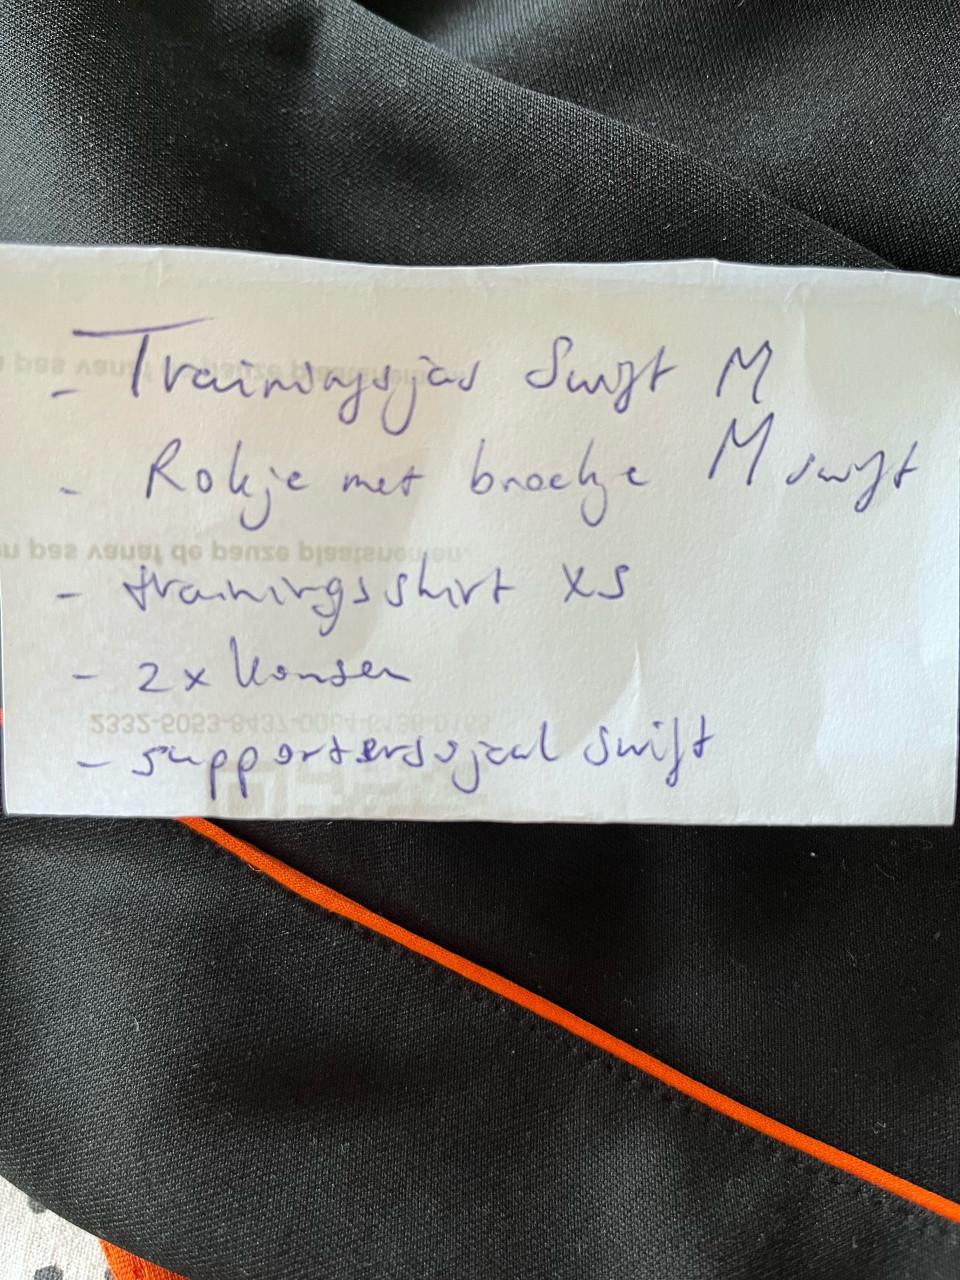 - Trainingsjas Swift M
- Rokje met broekje M swift
- trainingsshirt XS
- 2x kousen
- supporterssjaal swift